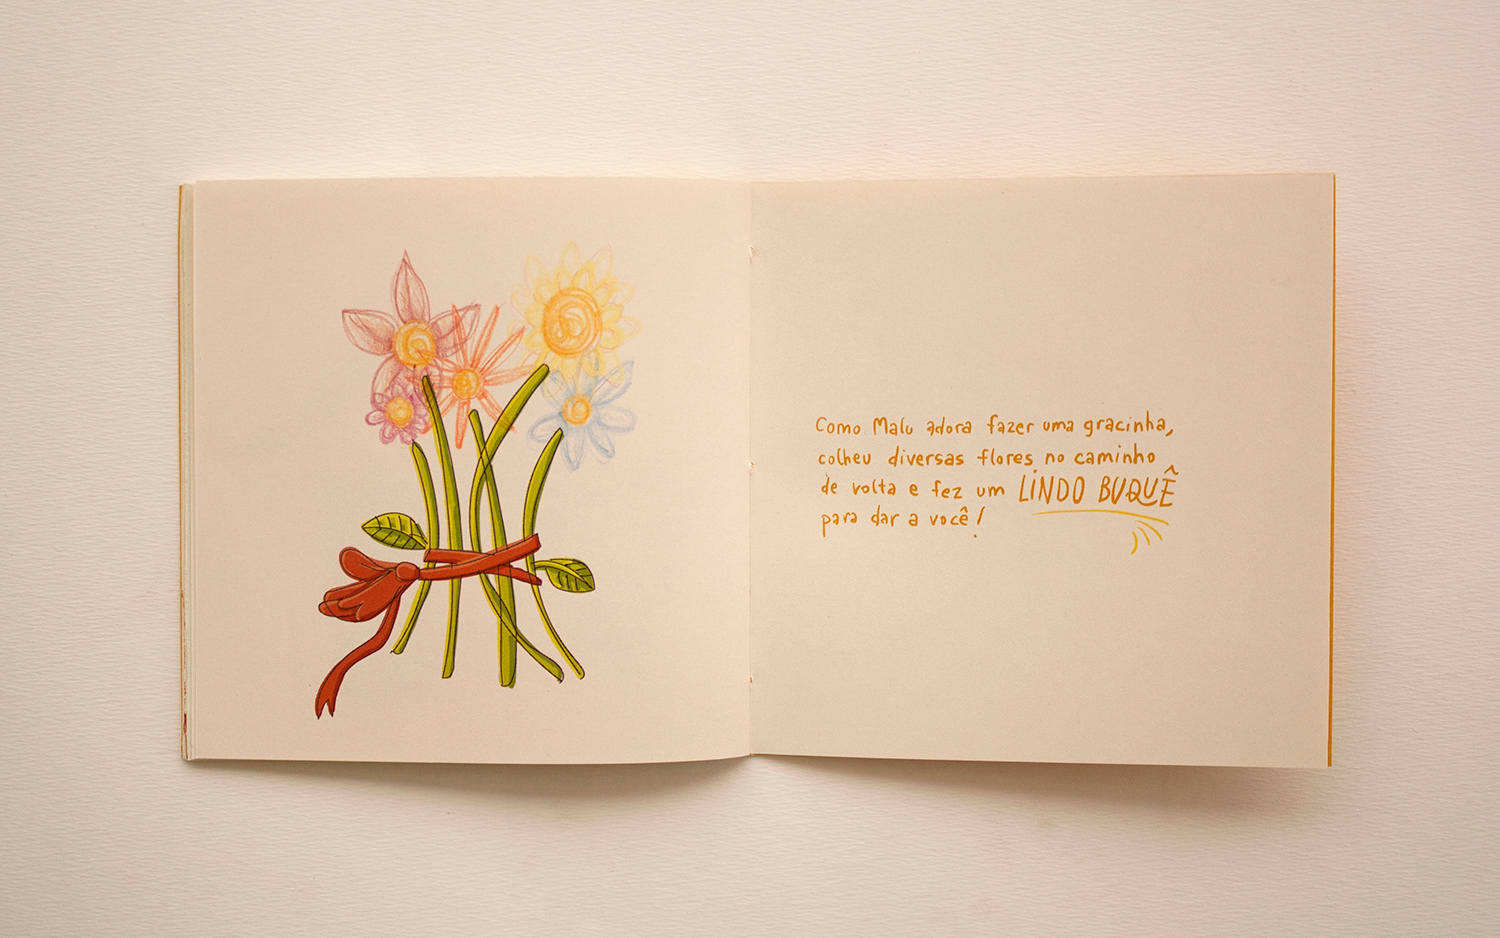 Como Malu adora fazer uma gracinha,
colheu diversas flores no caminho
de volta e fez um LINDO BUQUÊ
para dar a você!